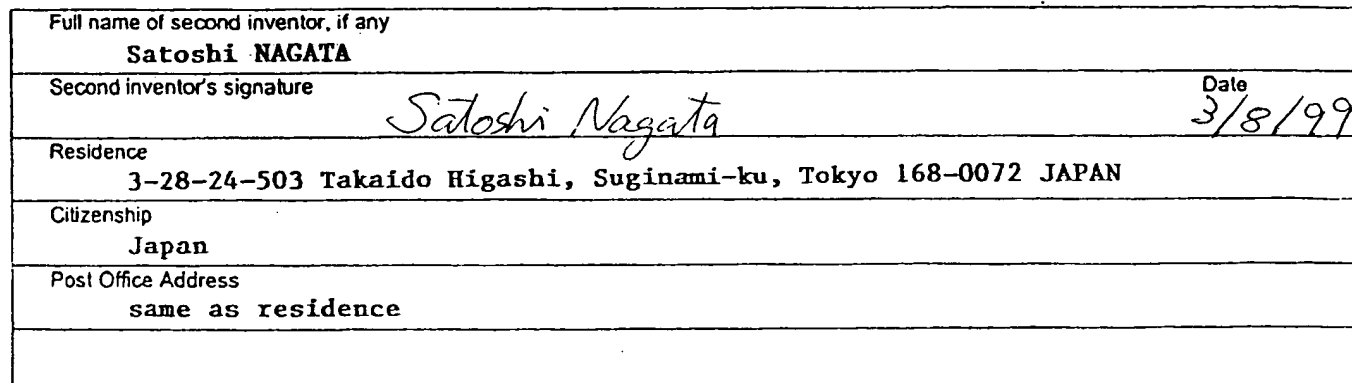 Full name of second inventor, if any
Satoshi NAGATA
Second inventor's signature Date
Satoshi Nagata 3/8/99
Residence
3-28-24-503 Takaido Higashi, Suginami-ku, Tokyo 168-0072 JAPAN
Citizenship
Japan
Post Office Address
same as residence